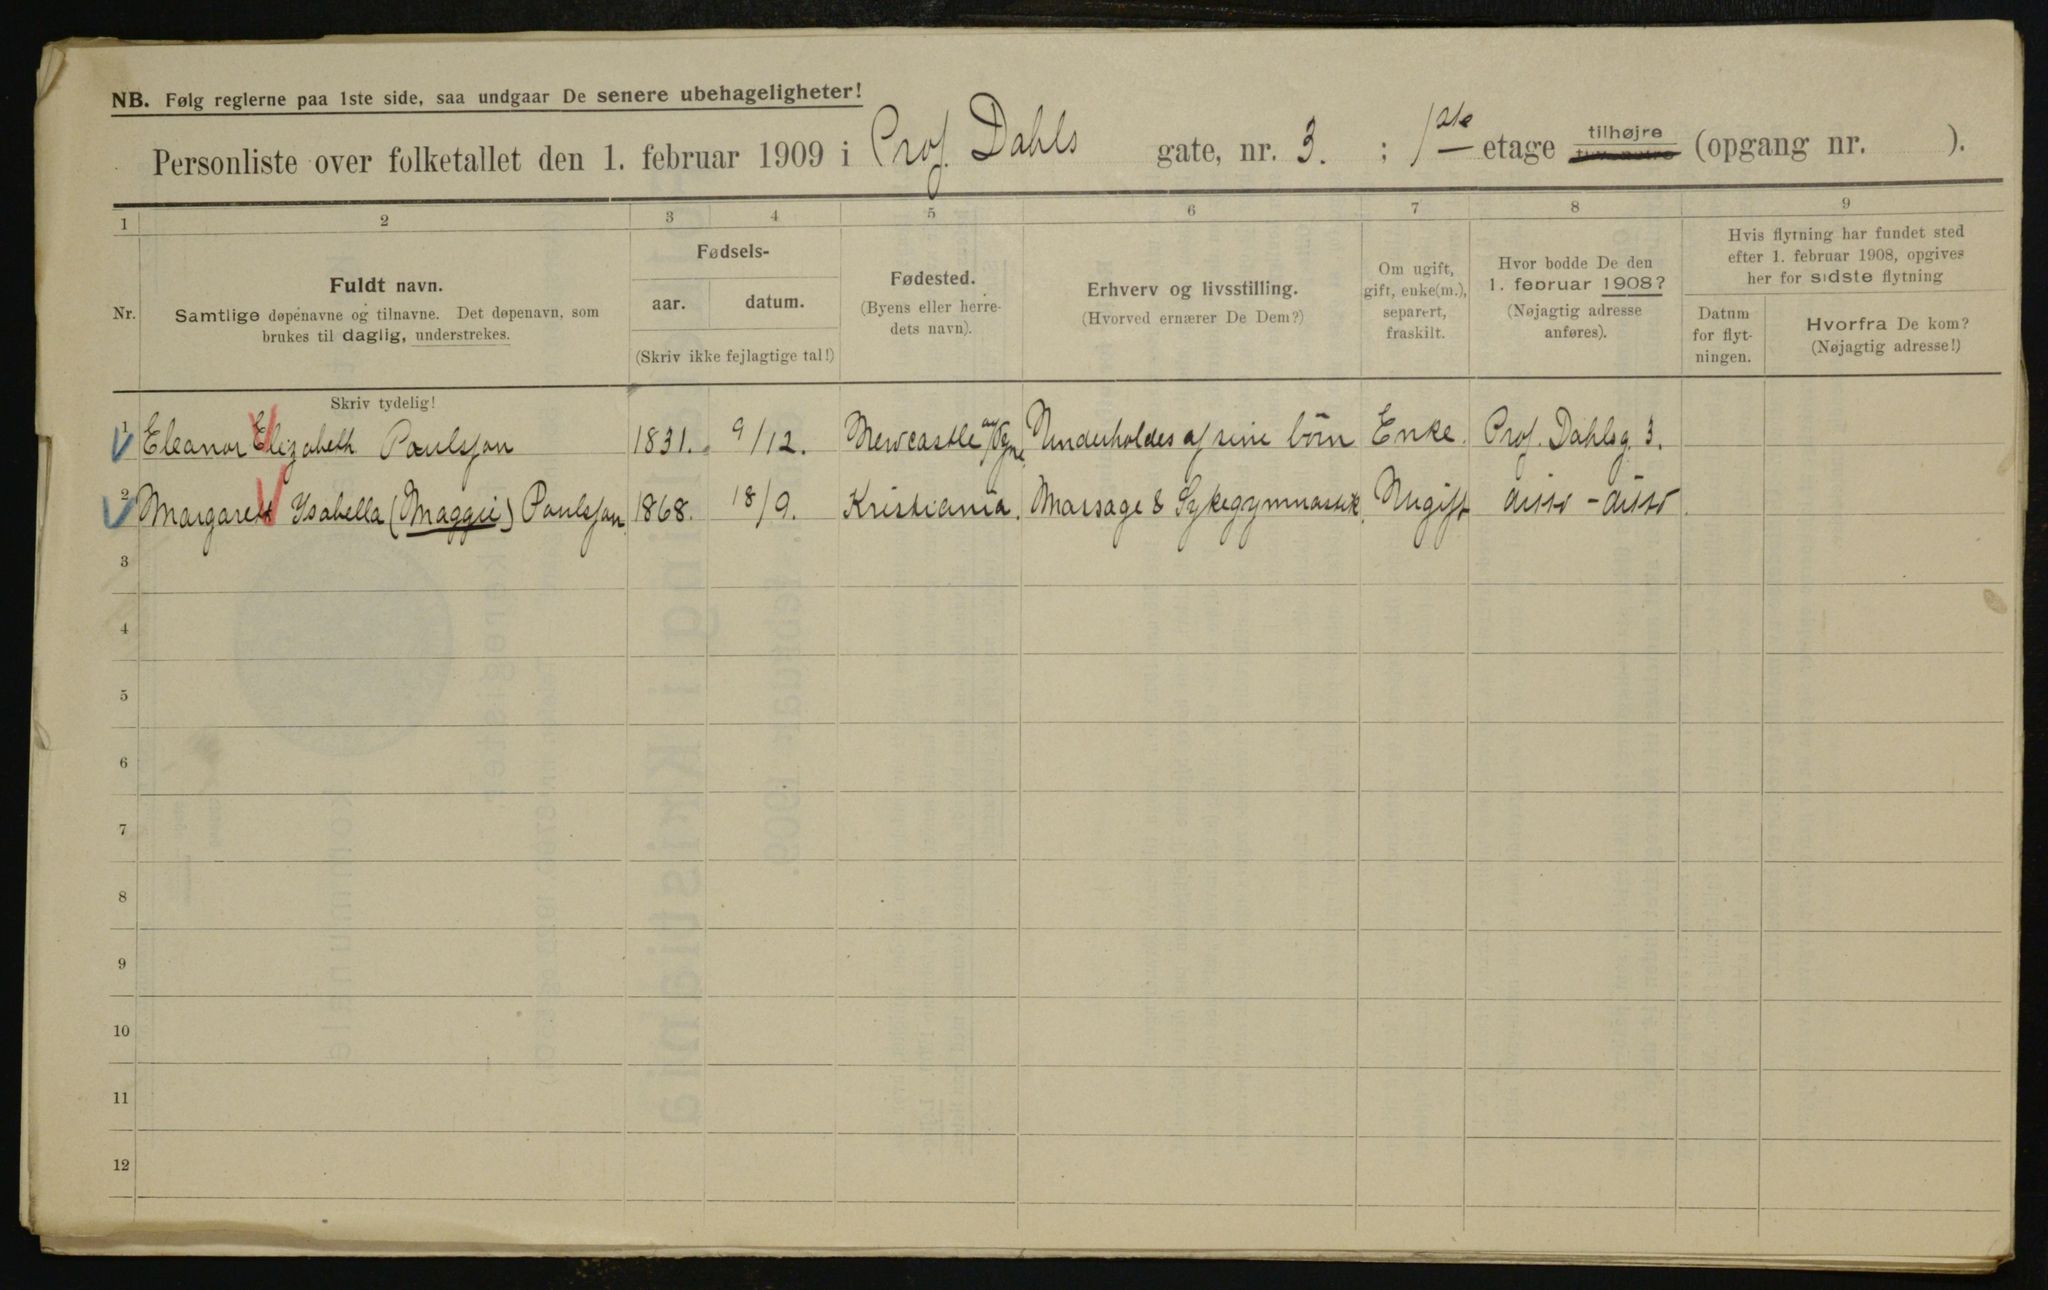 NB. Følg reglerne paa 1ste side, saa undgaar De senere ubehageligheter!
Personliste over folketallet den 1. februar 1909 i Prof. Dahls gate, nr. 3. ; 1ste etage tilhøjre (opgang nr. ).
1 2 3 4 5 6 7 8 9
Nr.
Fuldt navn.
Samtlige døpenavne og tilnavne. Det døpenavn, som
brukes til daglig, understrekes.
Fødsels-
aar. datum.
(Skriv ikke fejlagtige tal!)
Fødested.
(Byens eller herre-
dets navn).
Erhverv og livsstilling.
(Hvorved ernærer De Dem?)
Om ugift,
gift, enke(m.),
separert,
fraskilt.
Hvor bodde De den
1. februar 1908?
(Nøjagtig adresse
anføres).
Hvis flytning har fundet sted
efter 1. februar 1908, opgives
her for sidste flytning
Datum
for flyt-
ningen.
Hvorfra De kom?
(Nøjagtig adresse!)
Skriv tydelig!
1 Eleanor Elizabeth Paulsjon 1831. 9/12. Newcastle Underholdes af sine börn Enke. Prof. Dahlsg. 3.
2 Margaret Ysabella (Maggie) Paulsjon 1868. 18/9. Kristiania. Massage & Sykegymnastik. Ugift ditto - ditto
3
4
5
6
7
8
9
10
11
12